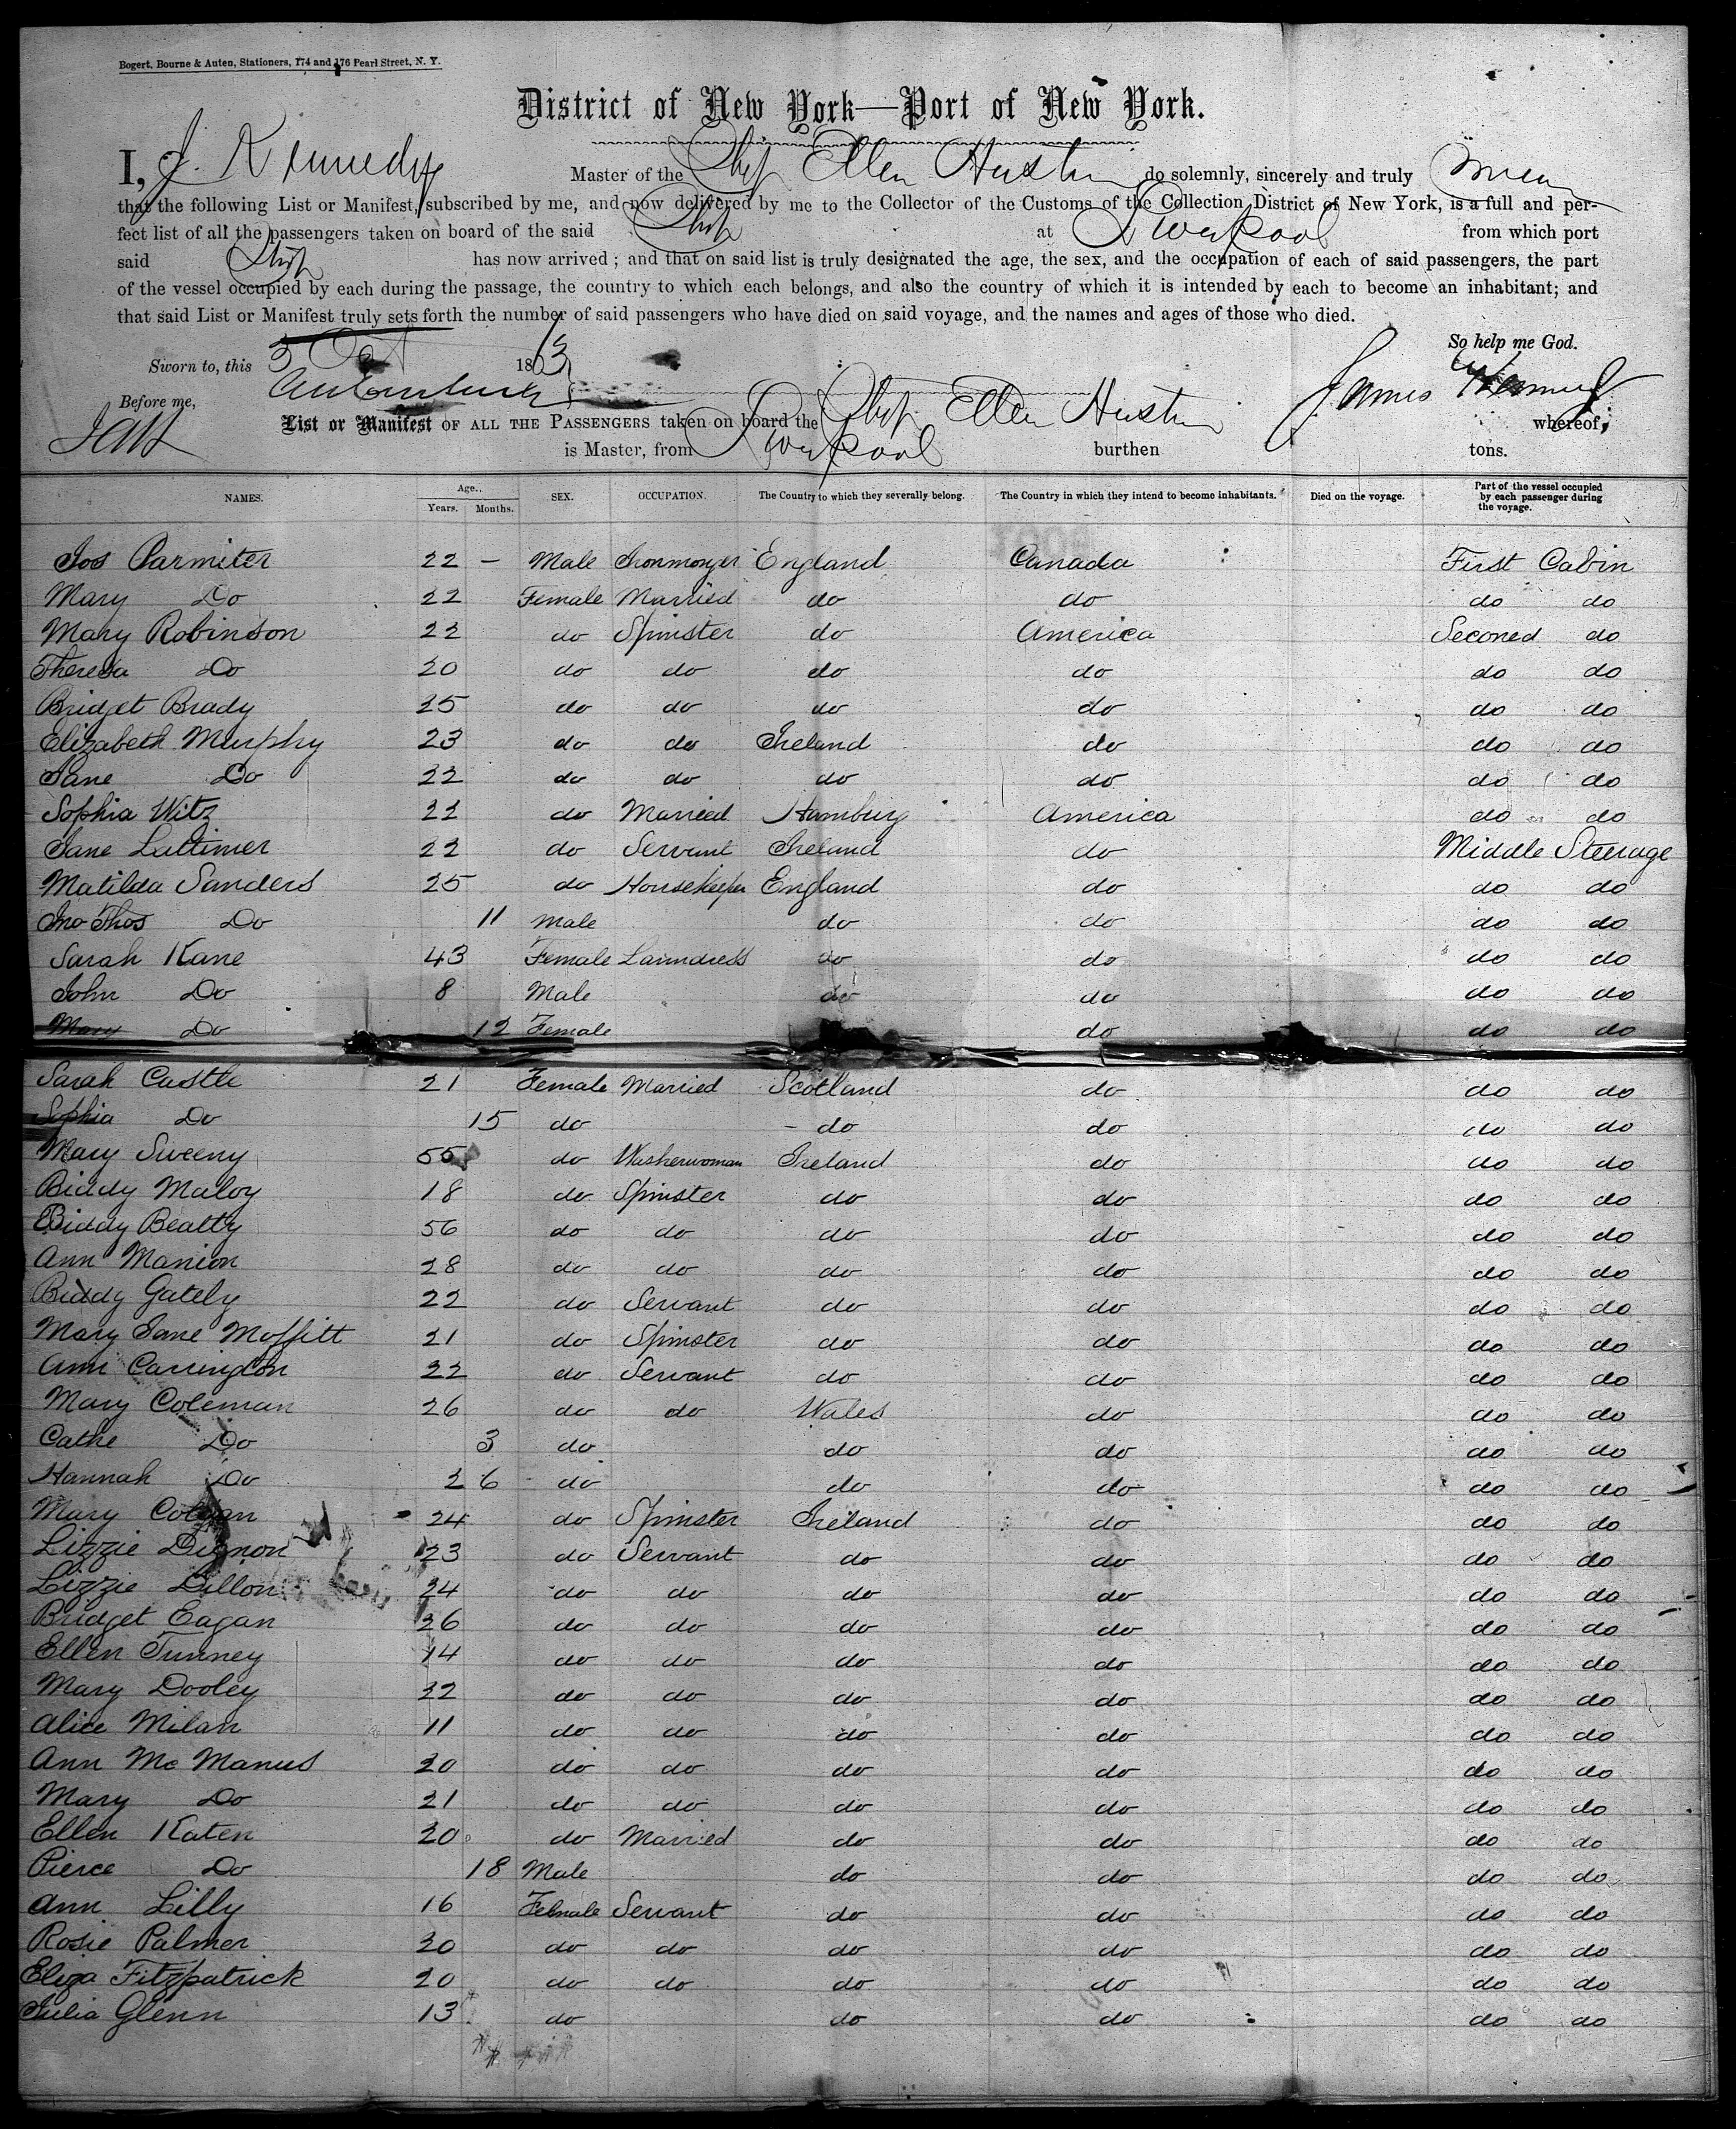 Bogert, Bourne & Auten, Stationers, 174 and 176 Pearl Street, N. Y.
District of New York—Port of New York.
I, J. Kennedy Master of the Ship Ellen Austin do solemnly, sincerely and truly swear
that the following List or Manifest, subscribed by me, and now delivered by me to the Collector of the Customs of the Collection District of New York, is a full and per-
fect list of all the passengers taken on board of the said Ship at Liverpool from which port
said Ship has now arrived; and that on said list is truly designated the age, the sex, and the occupation of each of said passengers, the part
of the vessel occupied by each during the passage, the country to which each belongs, and also the country of which it is intended by each to become an inhabitant; and
that said List or Manifest truly sets forth the number of said passengers who have died on said voyage, and the names and ages of those who died.
So help me God.
Sworn to, this 3 Oct 1863
Before me, James
List or Manifest OF ALL THE PASSENGERS taken on board the Ship Ellen Austin whereof
is Master, from Liverpool burthen tons.
NAMES. Age. Years. Months. SEX. OCCUPATION. The Country to which they severally belong. The Country in which they intend to become inhabitants. Died on the voyage. Part of the vessel occupied by each passenger during the voyage.
Jos Parmiter 22 — Male Ironmonger England Canada First Cabin
Mary Do 22 Female Married do do do do
Mary Robinson 22 do Spinster do America Seconed do
Theresa Do 20 do do do do do do
Bridget Brady 25 do do do do do do
Elizabeth Murphy 23 do do Ireland do do do
Jane Do 22 do do do do do do
Sophia Witz 22 do Married Hamburg America do do
Jane Lattimer 22 do Servant Ireland do Middle Steerage
Matilda Sanders 25 do Housekeeper England do do do
Jno Thos Do 11 Male do do do do
Sarah Kane 43 Female Laundress do do do do
John Do 8 Male do do do do
Mary Do 12 Female do do do
Sarah Castle 21 Female Married Scotland do do do
Sophia Do 15 do do do do do
Mary Sweeny 55 do Washerwoman Ireland do do do
Biddy Maloy 18 do Spinster do do do do
Biddy Beatty 56 do do do do do do
Ann Manion 28 do do do do do do
Biddy Gately 22 do Servant do do do do
Mary Jane Moffitt 21 do Spinster do do do do
Ann Carrington 22 do Servant do do do do
Mary Coleman 26 do do Wales do do do
Cathe Do 3 do do do do do
Hannah Do 2 6 do do do do do
Mary Colgan 24 do Spinster Ireland do do do
Lizzie Dignon 23 do Servant do do do do
Lizzie Dillon 24 do do do do do do
Bridget Eagan 26 do do do do do do
Ellen Tunney 14 do do do do do do
Mary Dooley 22 do do do do do do
Alice Milan 11 do do do do do do
Ann Mc Manus 20 do do do do do do
Mary Do 21 do do do do do do
Ellen Katen 20 do Married do do do do
Pierce Do 18 Male do do do do
Ann Lilly 16 Female Servant do do do do
Rosie Palmer 20 do do do do do do
Eliza Fitzpatrick 20 do do do do do do
Julia Glenn 13 do do do do do